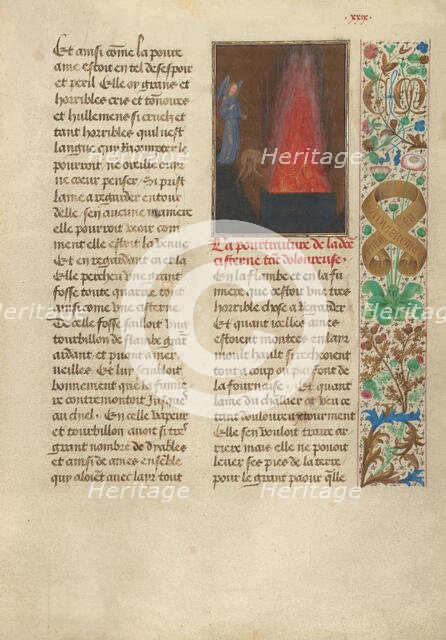 xxix
Et ainsi come la poure
ame estoit en tel desespoir
et peril Elle oy grans et
horribles cris et tonoires
et hullemens si cruelz et
tant horribles quil nest
langue quy racompter le
pourroit ne oreille ouir
ne coeur penser Si prist
lame a regarder entour
delle sen aucune maniere
elle pourroit veoir com
ment elle estoit la venue
Et en regardant ca et la
Elle percheu une grant
fosse toute quarree tout
ainsi come une cisterne
De celle fosse sailloit ung
tourbillon de flame grant
ardant et puant a mer
veilles Et luy sembloit
bonnement que la fumiere
contremontoit jusques
au chiel En celle vapeur
et tourbillon avoit si tres
grant nombre de dyables
et ainsi de ames ensemble
quy aloient avec lair tout
La pourtraiture de la dicte
cisterne tres doloureuse
En la flambe et en la fu
miere que cestoit une tres
horrible chose a regarder
Et quant icelles ames
estoient montees en lair
moult hault si recheoient
tout a coup ou parfont de
la fournaise Et quant
lame du chevallier et veu ce
tant douloureux tourment
Elle sen vouloit traire ar
riere mais elle ne povoit
lever ses pies de la terre
pour le grant paour quelle
C M
Heritage
Images
Heritage
Images
Heritage
Images
Heritage
Images
Heritage
Images
Heritage
Images